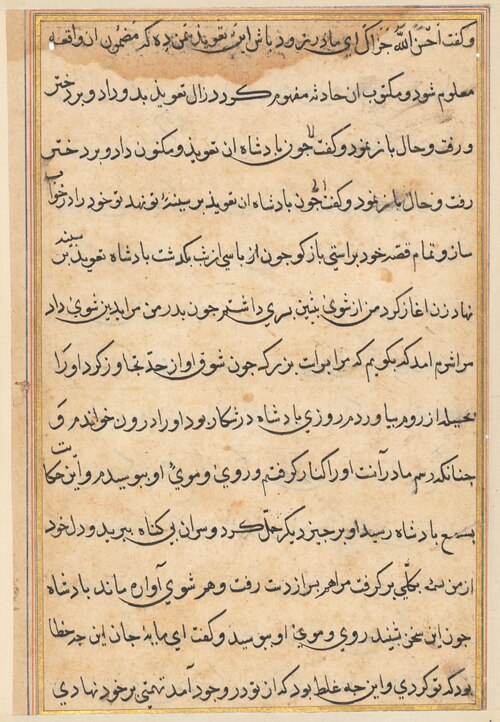 و کفت احسن الله جزاک ای مادر تو زود باش این تعوید بمن ده که مضمون ان واقعه
معلوم شود و مکتوب ان حادثه مفهوم کردد زال تعوید بدو داد و بر دختر
و رفت و حال باز نمود و کفت چون بادشاه ان تعوید و مکتون داد و بر دختر
رفت و حال باز نمود و کفت چون بادشاه ان تعوید بر سینهٔ تو نهد تو خود را در خواب
ساز و تمام قصه خود براستی باز کو چون از باسی از شب بکدشت بادشاه تعوید بر سینه
نهاد زن اغاز کرد من از شوی بیشین بسری داشتم چون بدر من مرا بدین شوی داد
مرا شرم امد که بکویم که مرا برات بزرک چون شوق او از حد تجاوز کرد او را
بحیله از روم بیاوردم روزی بادشاه در شکار بود او را درون خواندم و
چنانکه رسم مادرانت او را کنار کرفتم و روی و موی او ببوسیدم و این حکایت
بسمع بادشاه رسید او بر چیز دیکر حمل کرد و سر ان بی کناه ببرید و دل خود
از من بکلی بر کرفت مرا هم بسر از دست رفت و هم شوی آواره ماند بادشاه
چون این سخن بشنید روی و موی او ببوسید و کفت ای مایهٔ جان این چه خطا
بود که تو کردی و این چه غلط بود که از تو در وجود آمد تهمتی بر خود نهادی